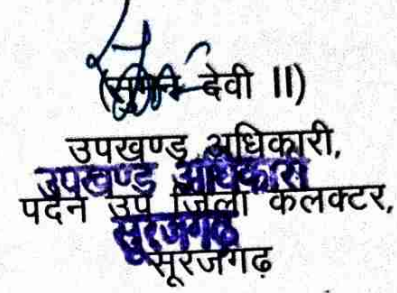 (सुमन देवी II)
उपखण्ड अधिकारी,
उपखण्ड अधिकारी
पदेन उप जिला कलक्टर,
सूरजगढ
सूरजगढ़